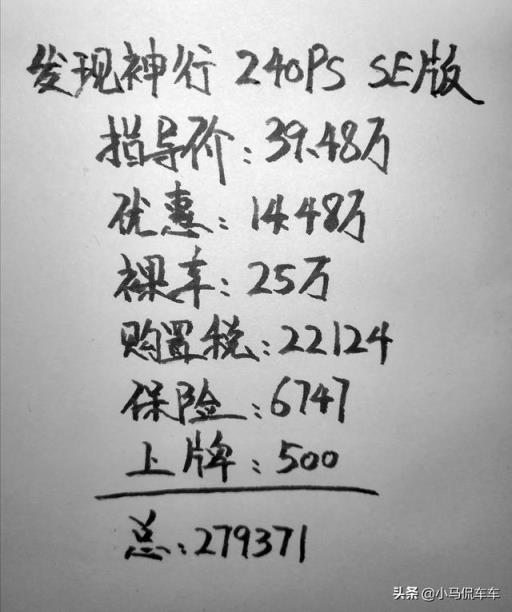 发现神行 240PS SE版
指导价:39.48万
优惠:14.48万
裸车:25万
购置税:22124
保险:6747
上牌:500
总:279371
头条 @小马侃车车